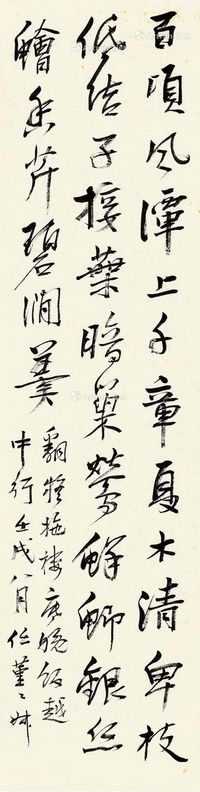 百頃風潭上千章夏木清卑枝
低結子接葉暗巢鶯鮮鯽銀絲
鱠香芹碧澗羹
翻疑柂樓底晚飯越
中行壬戌八月